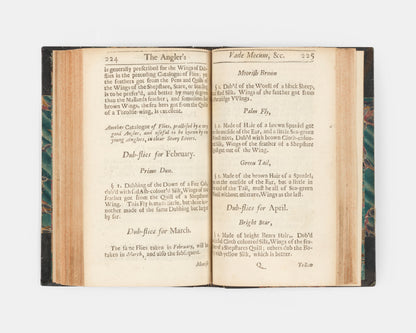 224 The Angler's
is generally prescribed for the Wings of Dub-
flies in the preceding Catalogue of Flies, yet
the feathers got from the Pens and Quills of
the Wings of the Shepstare, Stare, or Starling
is to be prefer'd, and better by many degrees
than the Mallards feather; and sometimes for
brown Wings, the feathers got from the Quill
of a Throstle-wing, is excellent.
Another Catalogue of Flies, practised by a very
good Angler, and useful to be known by
young Anglers, in clear Stony Rivers.
Dub-flies for February.
Prime Dun.
§ 1. Dubbing of the Down of a Fox Cub,
rib'd with Ash-colour'd Silk, Wings of the
feather got from the Quill of a Shepstare
Wing. This Fly is made little, but there is
another made of the same Dubbing but larger
by far.
Dub-flies for March.
The same Flies taken in February, will be
taken in March, and also the subsequent.
Moorish
Vade Mecum, &c. 225
Moorish Brown
§ 1. Dub'd of the Wooll of a black Sheep,
red Silk, Wings of the feather got from
Wings.
Palm Fly,
§ 2. Made of Hair of a brown Spaniel got
on the outside of the Ear, and a little Sea-green
mixt, Dub'd with Cloth-colour'd
Silk, Wings of the feather of a Shepstare
Quill out of the Wing.
Green Tail,
§ 3. Made of the brown Hair of a Spaniel,
on the outside of the Ear, but a little in
end of the Tail, must be all of Sea-green
Wool without mixture, Wings as the last.
Dub-flies for April.
Bright Bear,
§ 1. Made of bright Bears Hair, Dub'd
with Cloth colour'd Silk, Wings of the fea-
ther of a Shepstares Quill; others dub the Body
yellow Silk, which is better.
Q Yellow